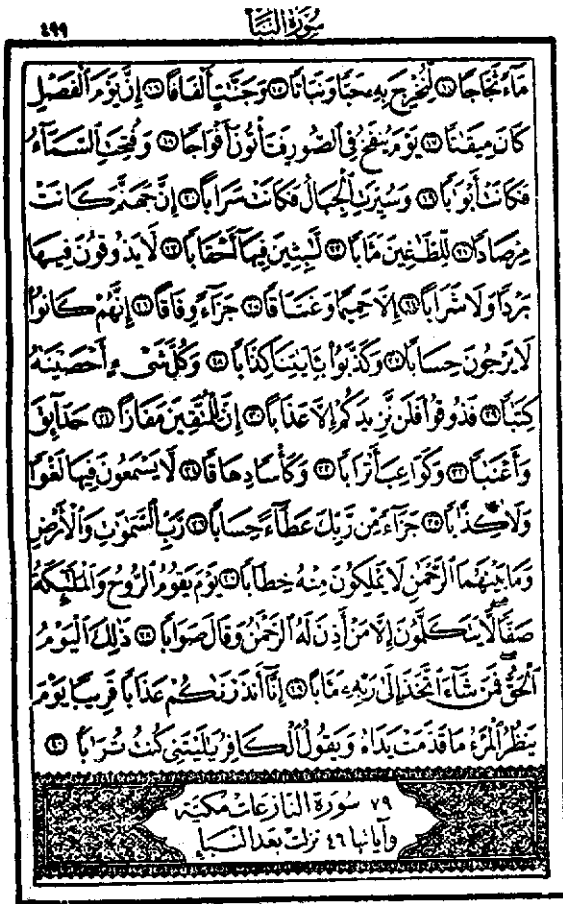 ٤٩٩ سُورَةُ النَّبَأ
مَآءً ثَجَّاجًا ١٤ لِّنُخْرِجَ بِهِۦ حَبًّا وَنَبَاتًا ١٥ وَجَنَّٰتٍ أَلْفَافًا ١٦ إِنَّ يَوْمَ ٱلْفَصْلِ
كَانَ مِيقَٰتًا ١٧ يَوْمَ يُنفَخُ فِى ٱلصُّورِ فَتَأْتُونَ أَفْوَاجًا ١٨ وَفُتِحَتِ ٱلسَّمَآءُ
فَكَانَتْ أَبْوَٰبًا ١٩ وَسُيِّرَتِ ٱلْجِبَالُ فَكَانَتْ سَرَابًا ٢٠ إِنَّ جَهَنَّمَ كَانَتْ
مِرْصَادًا ٢١ لِّلطَّٰغِينَ مَـَٔابًا ٢٢ لَّٰبِثِينَ فِيهَآ أَحْقَابًا ٢٣ لَّا يَذُوقُونَ فِيهَا
بَرْدًا وَلَا شَرَابًا ٢٤ إِلَّا حَمِيمًا وَغَسَّاقًا ٢٥ جَزَآءً وِفَاقًا ٢٦ إِنَّهُمْ كَانُوا۟
لَا يَرْجُونَ حِسَابًا ٢٧ وَكَذَّبُوا۟ بِـَٔايَٰتِنَا كِذَّابًا ٢٨ وَكُلَّ شَىْءٍ أَحْصَيْنَٰهُ
كِتَٰبًا ٢٩ فَذُوقُوا۟ فَلَن نَّزِيدَكُمْ إِلَّا عَذَابًا ٣٠ إِنَّ لِلْمُتَّقِينَ مَفَازًا ٣١ حَدَآئِقَ
وَأَعْنَٰبًا ٣٢ وَكَوَاعِبَ أَتْرَابًا ٣٣ وَكَأْسًا دِهَاقًا ٣٤ لَّا يَسْمَعُونَ فِيهَا لَغْوًا
وَلَا كِذَّٰبًا ٣٥ جَزَآءً مِّن رَّبِّكَ عَطَآءً حِسَابًا ٣٦ رَّبِّ ٱلسَّمَٰوَٰتِ وَٱلْأَرْضِ
وَمَا بَيْنَهُمَا ٱلرَّحْمَٰنِ لَا يَمْلِكُونَ مِنْهُ خِطَابًا ٣٧ يَوْمَ يَقُومُ ٱلرُّوحُ وَٱلْمَلَٰٓئِكَةُ
صَفًّا لَّا يَتَكَلَّمُونَ إِلَّا مَنْ أَذِنَ لَهُ ٱلرَّحْمَٰنُ وَقَالَ صَوَابًا ٣٨ ذَٰلِكَ ٱلْيَوْمُ
ٱلْحَقُّ فَمَن شَآءَ ٱتَّخَذَ إِلَىٰ رَبِّهِۦ مَـَٔابًا ٣٩ إِنَّآ أَنذَرْنَٰكُمْ عَذَابًا قَرِيبًا يَوْمَ
يَنظُرُ ٱلْمَرْءُ مَا قَدَّمَتْ يَدَاهُ وَيَقُولُ ٱلْكَافِرُ يَٰلَيْتَنِى كُنتُ تُرَٰبًا ٤٠
٧٩ سُورَةُ النَّازِعَاتِ مَكِّيَّة
وآياتها ٤٦ نزلت بعد النبإ